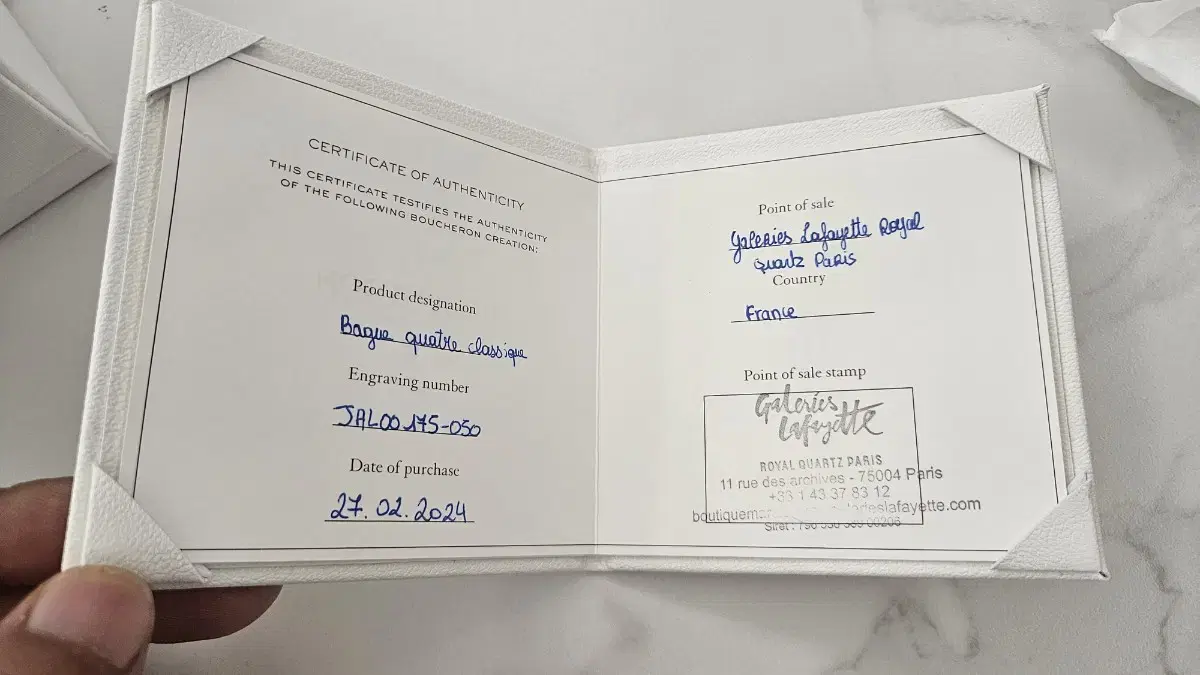 CERTIFICATE OF AUTHENTICITY
THIS CERTIFICATE TESTIFIES THE AUTHENTICITY
OF THE FOLLOWING BOUCHERON CREATION:
Product designation
Bague quatre classique
Engraving number
JAL00175-050
Date of purchase
27.02.2024
Point of sale
Galeries Lafayette Royal
Quartz Paris
Country
France
Point of sale stamp
Galeries
Lafayette
ROYAL QUARTZ PARIS
11 rue des archives - 75004 Paris
+33 1 43 37 83 12
Siret :